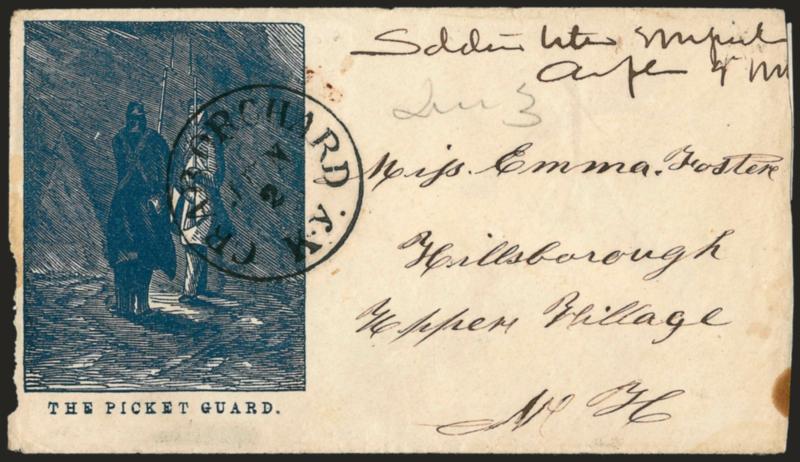 Soldier letter
Due 3
CRAB ORCHARD. KY.
MAY
2
Miss. Emma. Foster
Hillsborough
Upper Village
N H
THE PICKET GUARD.